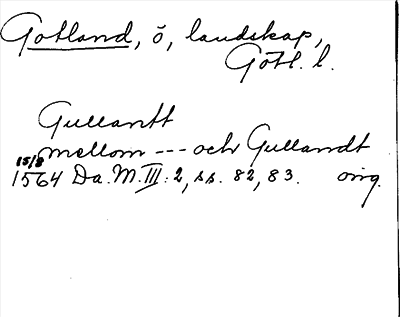 Gotland, ö, landskap,
Gotl. l.
Gullantt
mellom --- och Gullandt
15/8
1564 Da. M. III: 2, ss. 82, 83. orig.